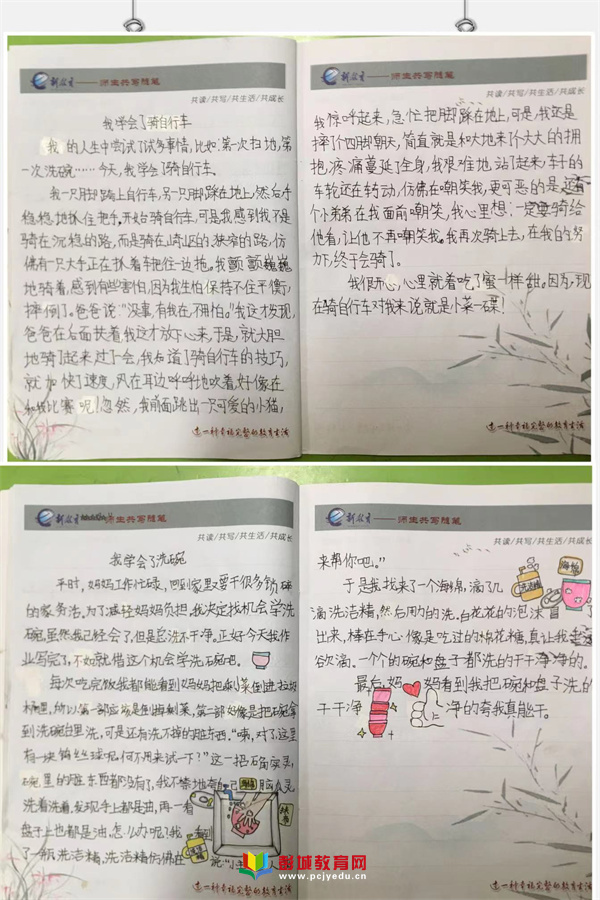 新教育——师生共写随笔
共读/共写/共生活/共成长
我学会了骑自行车
我的人生中尝试了许多事情,比如:第一次扫地,第
一次洗碗……今天,我学会了骑自行车。
我一只脚踏上自行车,另一只脚踩在地上,然后手
稳稳地抓住把手。开始骑自行车,可是我感到我不是
骑在沉稳的路,而是骑在崎岖的、狭窄的路,仿
佛有一只大手正在抓着车把往一边拖。我颤颤巍巍
地骑着,感到有些害怕,因为我生怕保持不住平衡,
摔倒了。爸爸说:“没事,有我在,不用怕。”我这才发现,
爸爸在后面扶着我这才放下心来。于是,就大胆
地骑了起来过了一会,我知道了骑自行车的技巧,
就加快了速度,风在耳边呼呼地吹着,好像在
和我比赛呢!忽然,我前面跳出一只可爱的小猫,
过一种幸福完整的教育生活
新教育——师生共写随笔
共读/共写/共生活/共成长
我惊呼起来,急忙把脚踩在地上,可是,我还是
摔了个四脚朝天,简直就是和大地来了个大大的拥
抱,疼痛蔓延了全身,我艰难地站了起来,车子的
车轮还在转动,仿佛在嘲笑我,更可恶的是,还有
个弟弟在我面前嘲笑,我心里想:一定要骑给
他看,让他不再嘲笑我。我再次骑上去,在我的努
力下,终于会骑了。
我很开心,心里就着吃了蜜一样甜。因为,现
在骑自行车对我来说就是小菜一碟!
过一种幸福完整的教育生活
新教育——师生共写随笔
共读/共写/共生活/共成长
我学会了洗碗
平时,妈妈工作忙碌,回到家里要干很多琐碎
的家务活。为了减轻妈妈负担,我决定找机会学洗
碗。虽然我已经会了,但是总洗不干净。正好今天我作
业写完了,不如就借这个机会学洗碗吧。
每次吃完饭我都能看到妈妈把剩菜倒进垃圾
桶里,所以第一部应该是倒掉剩菜,第二部好像是把碗拿
到洗碗池里洗,可是还有洗不掉的脏东西,“噢,对了,这里
有一块钢丝球呢,何不用来试一下?”这一招确实灵,
碗里的脏东西都没有了,我不禁地夸自己脑瓜灵
洗着洗着,发现手上都是油,再一看
盘子上也都是油,怎么办呢?我看到
了一瓶洗洁精,洗洁精仿佛在说“小主人
盐城教育网
www.pcjyedu.cn
新教育——师生共写随笔
共读/共写/共生活/共成长
来帮你吧。”
于是我找来了一个海绵,滴了几
滴洗洁精,然后用力的洗。白花花的泡沫冒了
出来,捧在手心像是吃过的棉花糖,真让我垂涎
欲滴。一个个的碗和盘子都洗的干干净净的。
最后,妈妈看到我把碗和盘子洗的
干干净净的夸我真能干。
海绵
洗洁精
过一种幸福完整的教育生活